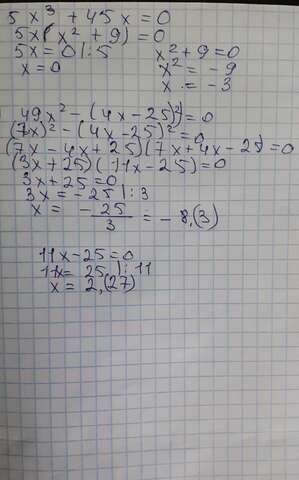 5x³ + 45x = 0
5x(x² + 9) = 0
5x = 0 |:5 x² + 9 = 0
x = 0 x² = -9
x = -3
49x² - (4x - 25)² = 0
(7x)² - (4x - 25)² = 0
(7x - 4x + 25)(7x + 4x - 25) = 0
(3x + 25)(11x - 25) = 0
3x + 25 = 0
3x = -25 | : 3
x = -25/3 = -8,(3)
11x - 25 = 0
11x = 25 | : 11
x = 2,(27)